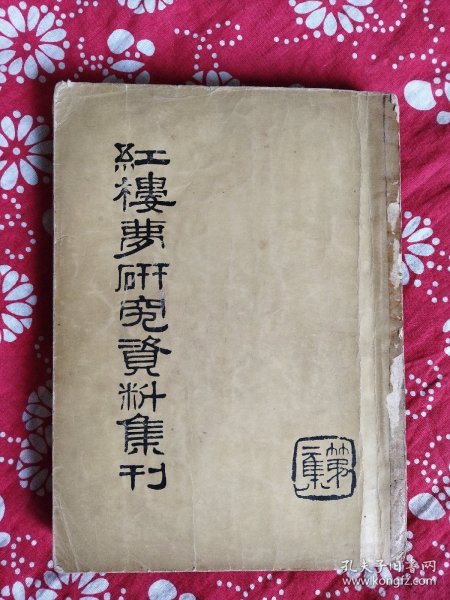 紅樓夢研究資料集刊
第二集
孔夫子旧书网
www.kongfz.com